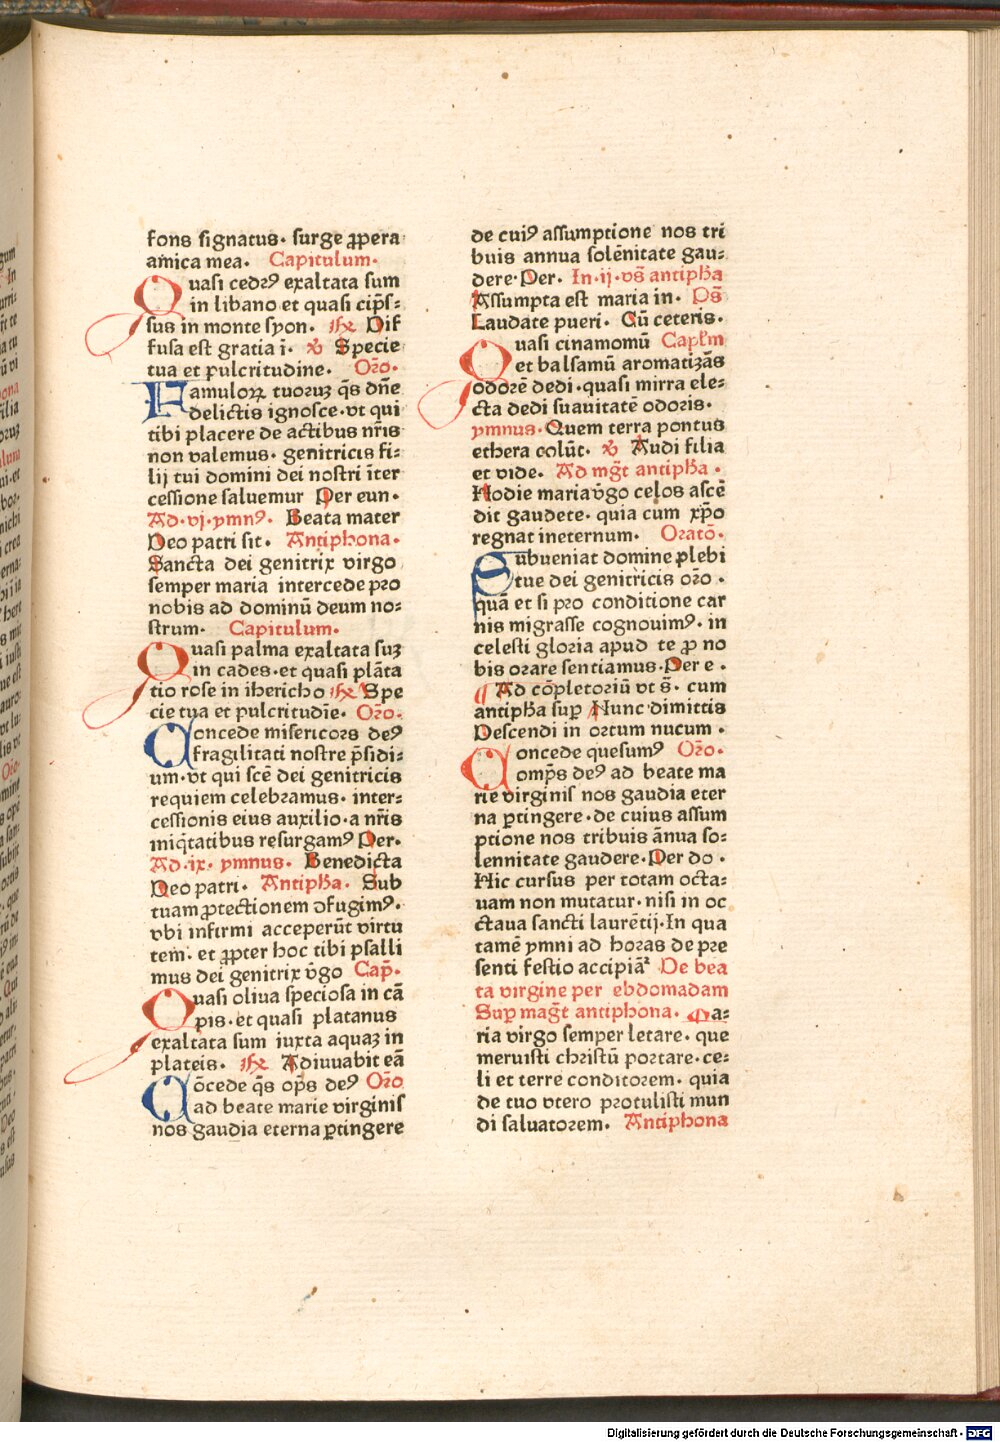 fons signatus· surge ꝓpera
amica mea· Capitulum·
Quasi cedrꝰ exaltata sum
in libano et quasi cip̄s⸗
sus in monte syon· ℟ Dif
fusa est gratia ī· ℣ Specie
tua et pulcritudine· Oro·
Famuloꝝ tuoruꝫ q̄s dn̄e
delictis ignosce·vt qui
tibi placere de actibus nr̄is
non valemus· genitricis fi⸗
lij tui domini dei nostri īter
cessione saluemur Per eun·
Ad·vj·ymnꝰ· Beata mater
Deo patri sit· Antiphona·
Sancta dei genitrix virgo
semper maria intercede pro
nobis ad dominū deum no⸗
strum· Capitulum·
Quasi palma exaltata suꝫ
in cades·et quasi plāta
tio rose in ihericho ℟ Spe
cie tua et pulcritudīe· Oro·
Concede misericors deꝰ
fragilitati nostre p̄sidi⸗
um·vt qui scē dei genitricis
requiem celebramus· inter⸗
cessionis eius auxilio·a nr̄is
miq̄tatibus resurgamꝰ Per·
Ad·ix· ymnus· Benedicta
Deo patri· Antipħa· Sub
tuam ꝓtectionem ↄfugimꝰ·
vbi infirmi acceperūt virtu
tem· et ꝓpter hoc tibi psalli
mus dei genitrix v̄go Cap̄·
Quasi oliua speciosa in cā
pis·et quasi platanus
exaltata sum iuxta aquaꝫ in
plateis· ℟ Adiuuabit eā
Cōcede q̄s op̄s deꝰ Oro
ad beate marie virginis
nos gaudia eterna ꝑtingere
de cuiꝰ assumptione nos tri
buis annua solēnitate gau⸗
dere·Per· In·ij·vs̄ antipħa
Assumpta est maria in· Ps̄
Laudate pueri· Cū ceteris·
Quasi cinamomū Capl̄m
et balsamū aromatizās
odorē dedi·quasi mirra ele⸗
cta dedi suauitatē odoris·
ymnus·Quem terra pontus
ethera colūt· ℣ Audi filia
et vide· Ad mgt̄ antipħa·
Hodie maria v̄go celos ascē
dit gaudete· quia cum xp̄o
regnat ineternum· Oratō·
Subueniat domine plebi
tue dei genitricis oro·
quā et si pro conditione car
nis migrasse cognouimꝰ· in
celesti gloria apud te ꝓ no
bis orare sentiamus·Per e·
¶ Ad cōpletoriū vt s̄· cum
antipħa suꝑ Nunc dimittis
Descendi in ortum nucum·
Concede quesumꝰ Oro·
omp̄s deꝰ ad beate ma
rie virginis nos gaudia eter
na ꝑtingere·de cuius assum
ptione nos tribuis ānua so⸗
lennitate gaudere·Per do·
Hic cursus per totam octa⸗
uam non mutatur·nisi in oc
ctaua sancti laurētij·In qua
tamē ymni ad horas de pre
senti festio accipiāᷓ De bea
ta virgine per ebdomadam
Suꝑ magt̄ antiphona· Ma⸗
ria virgo semper letare· que
meruisti christū portare·ce⸗
li et terre conditorem· quia
de tuo vtero protulisti mun
di saluatorem· Antiphona
Digitalisierung gefördert durch die Deutsche Forschungsgemeinschaft - DFG